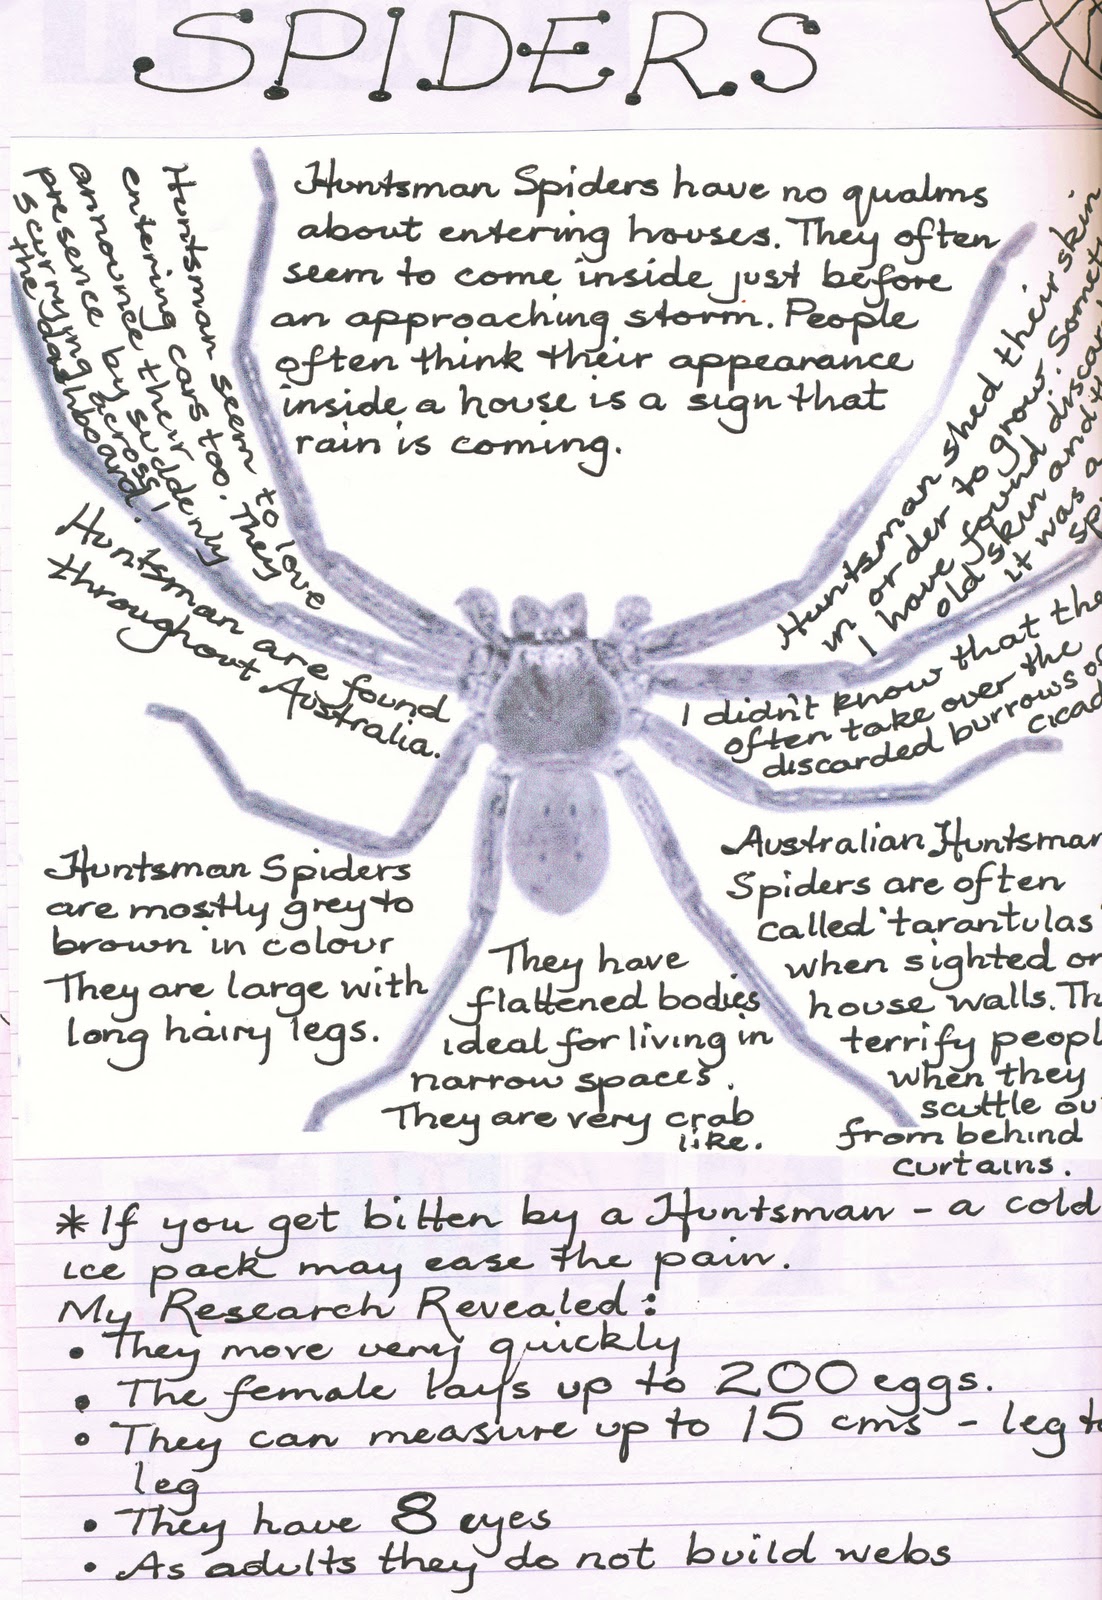 SPIDERS
Huntsman Spiders have no qualms
about entering houses. They often
seem to come inside just before
an approaching storm. People
often think their appearance
inside a house is a sign that
rain is coming.
Huntsman seem to love
entering cars too. They
announce their
presence by suddenly
scurrying across
the dashboard!
Huntsman are found
throughout Australia.
Huntsman shed their skin
in order to grow.
I have found discard
old skin and
it was a
I didn't know that the
often take over the
discarded burrows of
Huntsman Spiders
are mostly grey to
brown in colour
They are large with
long hairy legs.
They have
flattened bodies
ideal for living in
narrow spaces.
They are very crab
like.
Australian Huntsman
Spiders are often
called 'tarantulas'
when sighted on
house walls.
terrify
when they
scuttle
from behind
curtains.
*If you get bitten by a Huntsman - a cold
ice pack may ease the pain.
My Research Revealed:
• They move very quickly
• The female lays up to 200 eggs.
• They can measure up to 15 cms - leg to
leg
• They have 8 eyes
• As adults they do not build webs